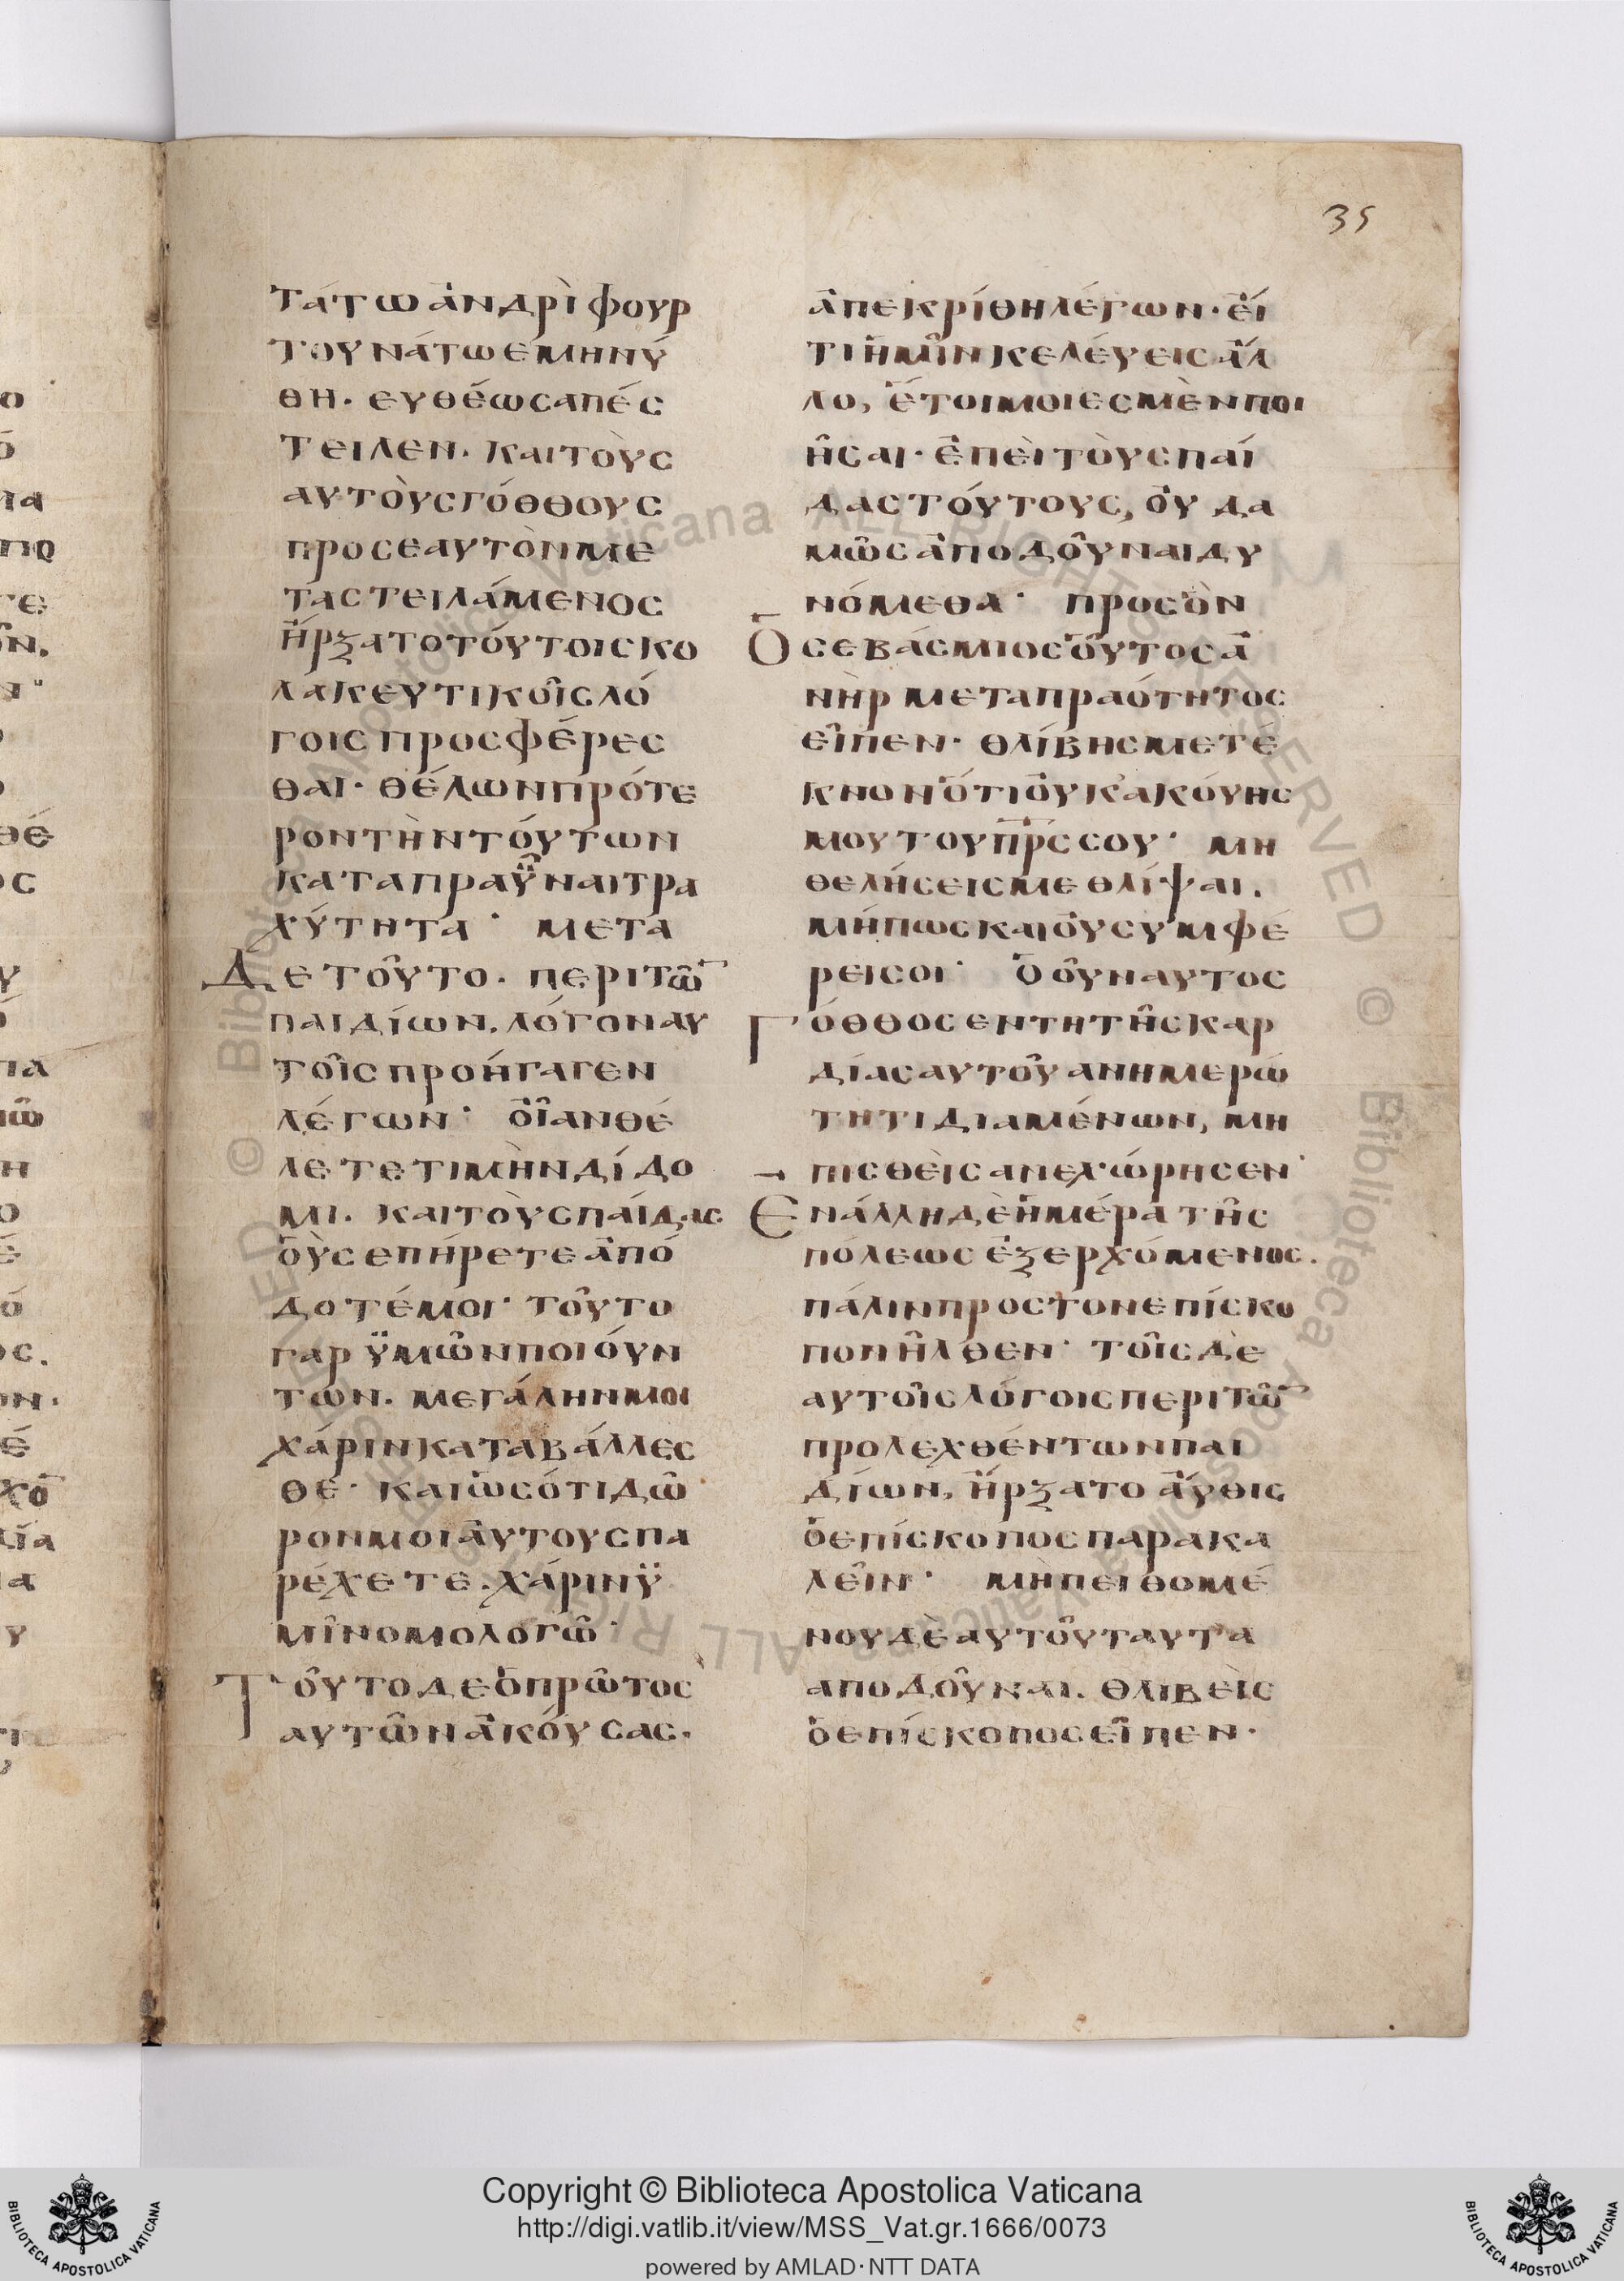 35
τάτω ἀνδρὶ φουρ
τουνάτω ἐμηνύ
θη· ευθέως απές
τειλεν. και τοὺς
αυτοὺς γόθθους
προς εαυτὸν με
ταςτειλάμενος
ἤρξατο τούτοις κο
λακευτικοῖς λό
γοις προςφέρες
θαι· θέλων πρότε
ρον τὴν τούτων
καταπραΰναι τρα
χύτητα· μετα
Δε τοῦτο. περι τῶ̅
παιδίων. λόγον αυ
τοῖς προήγαγεν
λέγων· ὅϊ ἀν θέ
λετε τιμὴν δίδο
μι. και τοὺς παίδας
οὓς επήρετε ἀπό
δοτέ μοι· τοῦτο
γαρ ϋμῶν ποιούν
των. μεγάλην μοι
χάριν καταβάλλες
θε· και ὡς ότι δῶ
ρον μοι ἀυτους πα
ρέχετε. χάριν ϋ
μῖν ομολογῶ·
Τοῦτο δε ὁ πρῶτος
αυτῶν ἀκούσας.
ἀπεκρίθη λέγων· ἐί
τι ἡμῖν κελέυεις ἄλ
λο, ἕτοιμοι εσμὲν ποι
ῆσαι· ἐπεὶ τοὺς παί
δας τούτους, ὀυ δα
μῶς ἀποδοῦναι δυ
νόμεθα· προς ὃν
Ὁ σεβάσμιος οὗτος ἀ
νὴρ μετα πραότητος
εἶπεν· θλίβης με τέ
κνον ὅτι ὀυκ ἀκόυης
μου του π̅ρ̅ς σου· μη
θελήσεις με θλίψαι.
μήπως και ὀυ συμφέ
ρει σοι· Ὁ οῦν αυτος
Γόθθος εν τη τῆς καρ
δίας αυτοῦ ανημερώ
τητι διαμένων, μη
πισθεὶς απεχώρησεν·
Εν άλλη δὲ ἡμέρα τῆς
πόλεως ἐξερχόμενος.
πάλιν προς τον επίσκο
πον ῆλθεν· τοῖς δὲ
αυτοῖς λόγοις περι τῶ̅
προλεχθέντων παι
δίων, ἤρξατο ἀύθις
ὁ επίσκοπος παρακα
λεῖν· μὴ πειθομέ
νου δὲ αυτοῦ ταυτα
αποδοῦναι. θλιβεὶς
ὁ επίσκοπος εἶπεν·
Copyright © Biblioteca Apostolica Vaticana
http://digi.vatlib.it/view/MSS_Vat.gr.1666/0073
powered by AMLAD·NTT DATA
BIBLIOTECA APOSTOLICA VATICANA
BIBLIOTECA APOSTOLICA VATICANA